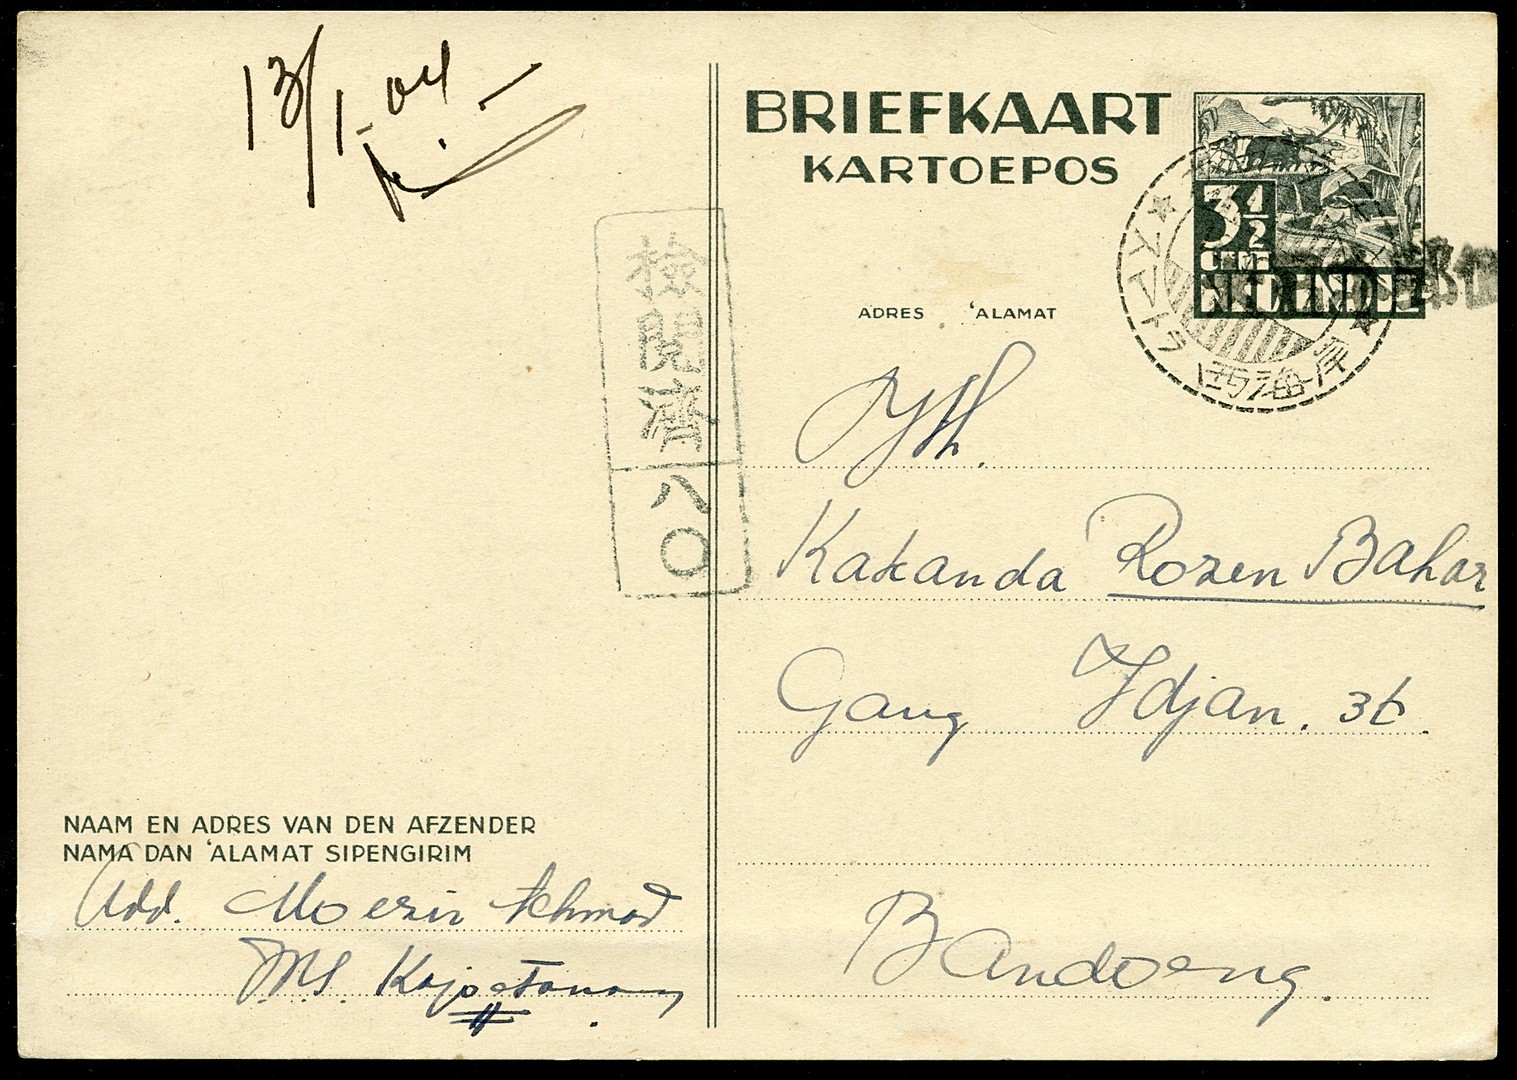 13/1-04
BRIEFKAART
KARTOEPOS
3 1/2
CENT
NED.INDIE
スマトラ 西海岸
検閲済
八〇
ADRES 'ALAMAT
Yth.
Kakanda Rozen Bahar
Gang Idjan. 36.
Bandoeng.
NAAM EN ADRES VAN DEN AFZENDER
NAMA DAN 'ALAMAT SIPENGIRIM
Add. Moezir Achmad
M.S. Kajoetanam.